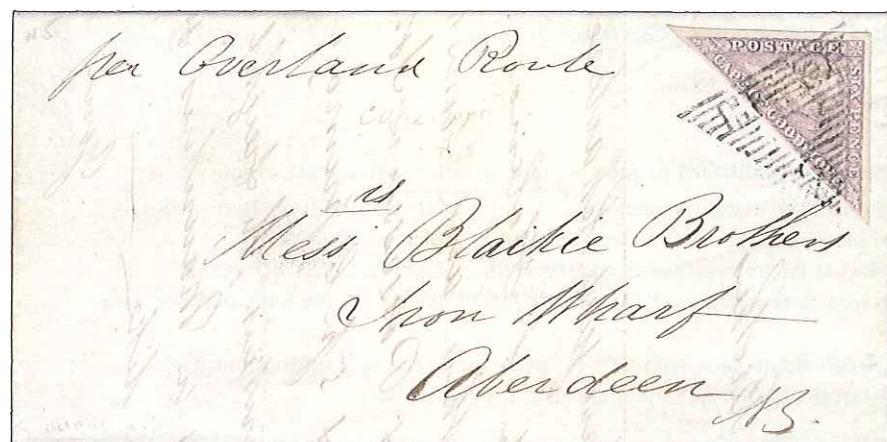 per Overland Route
POSTAGE
SIX PENCE
CAPE OF GOOD HOPE
Mess rs Blaikie Brothers
Iron Wharf
Aberdeen
NB.